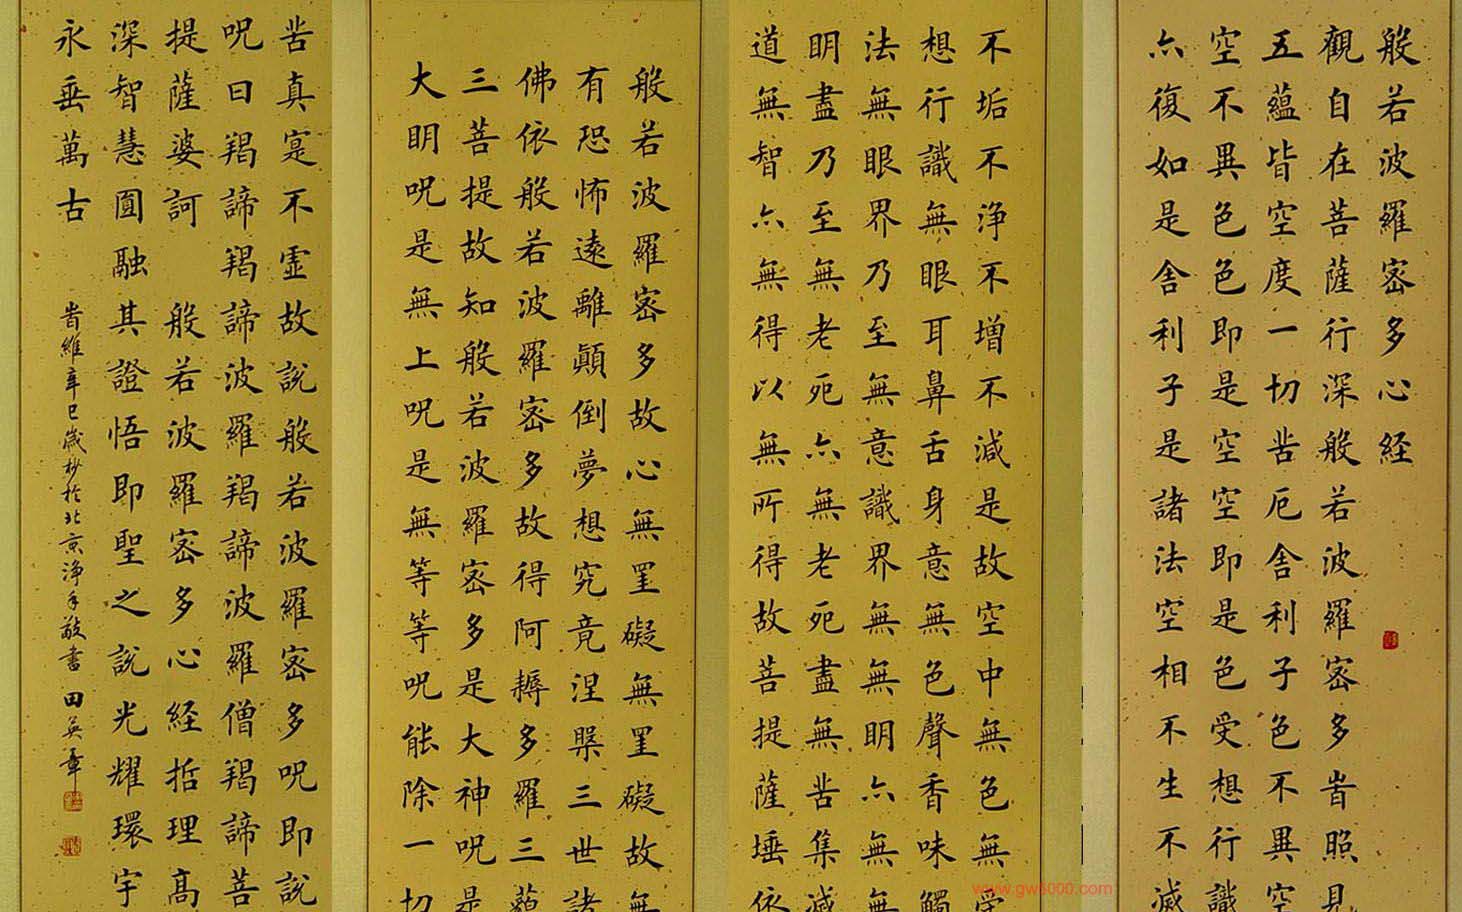 般若波羅密多心经
觀自在菩薩行深般若波羅密多旹照見
五蘊皆空度一切苦厄舍利子色不異空
空不異色色即是空空即是色受想行識
亦復如是舍利子是諸法空相不生不滅
不垢不净不增不減是故空中無色無受
想行識無眼耳鼻舌身意無色聲香味觸
法無眼界乃至無意識界無無明亦無無
明盡乃至無老死亦無老死盡無苦集滅
道無智亦無得以無所得故菩提薩埵依
般若波羅密多故心無罣礙無罣礙故無
有恐怖遠離顛倒夢想究竟涅槃三世諸
佛依般若波羅密多故得阿耨多羅三藐
三菩提故知般若波羅密多是大神呪是
大明呪是無上呪是無等等呪能除一切
苦真寔不虛故説般若波羅密多呪即説
呪曰羯諦羯諦波羅羯諦波羅僧羯諦菩
提薩婆訶 般若波羅密多心经哲理高
深智慧圓融其證悟即聖之説光耀環宇
永垂萬古
旹維辛巳歲杪於北京淨手敬書 田英章
www.gw6000.com